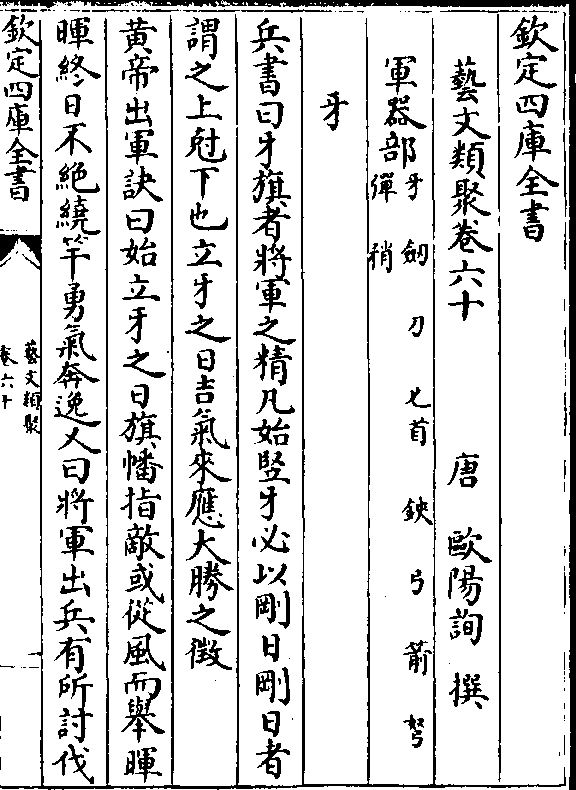 欽定四庫全書
藝文類聚卷六十
唐 歐陽詢 撰
軍器部 牙 劒 刀 匕首 鋏 弓 箭 弩
彈 矟
牙
兵書曰牙旗者將軍之精凡始竪牙必以剛日剛日者
謂之上尅下也立牙之日吉氣來應大勝之徴
黄帝出軍訣曰始立牙之日旗幡指敵或從風而舉暉
暉終日不絶繞竿勇氣奔逸又曰將軍出兵有所討伐
欽定四庫全書
藝文類聚
卷六十